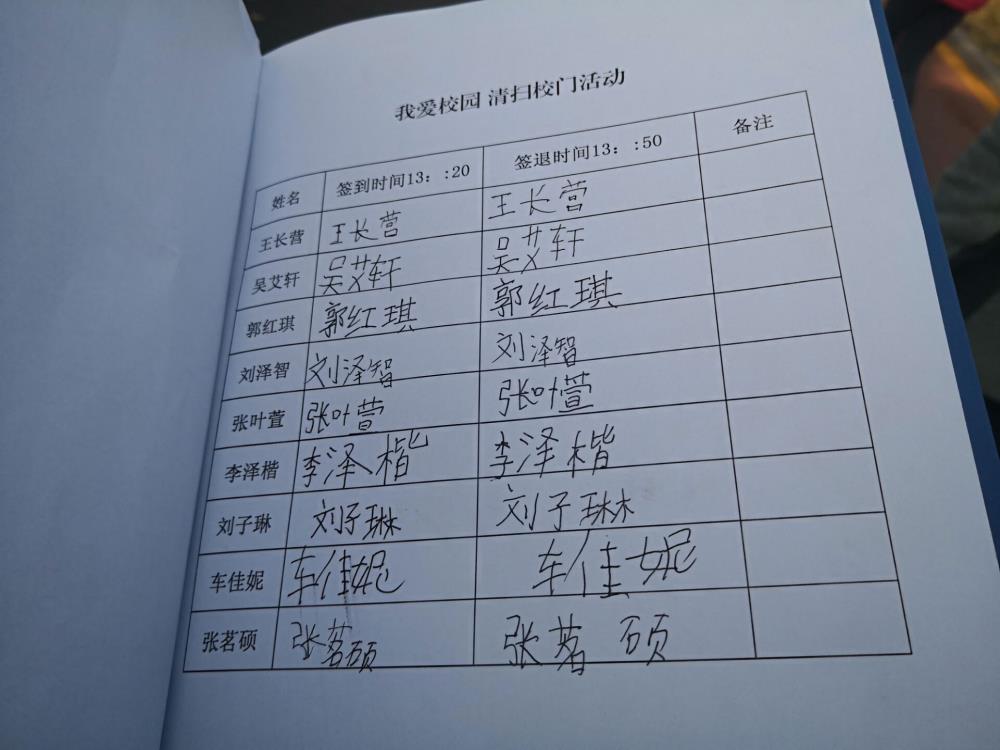 我爱校园 清扫校门活动
姓名 签到时间13：:20 签退时间13：:50 备注
王长营 王长营 王长营
吴艾轩 吴艾轩 吴艾轩
郭红琪 郭红琪 郭红琪
刘泽智 刘泽智 刘泽智
张叶萱 张叶萱 张叶萱
李泽楷 李泽楷 李泽楷
刘子琳 刘子琳 刘子琳
车佳妮 车佳妮 车佳妮
张茗硕 张茗硕 张茗硕